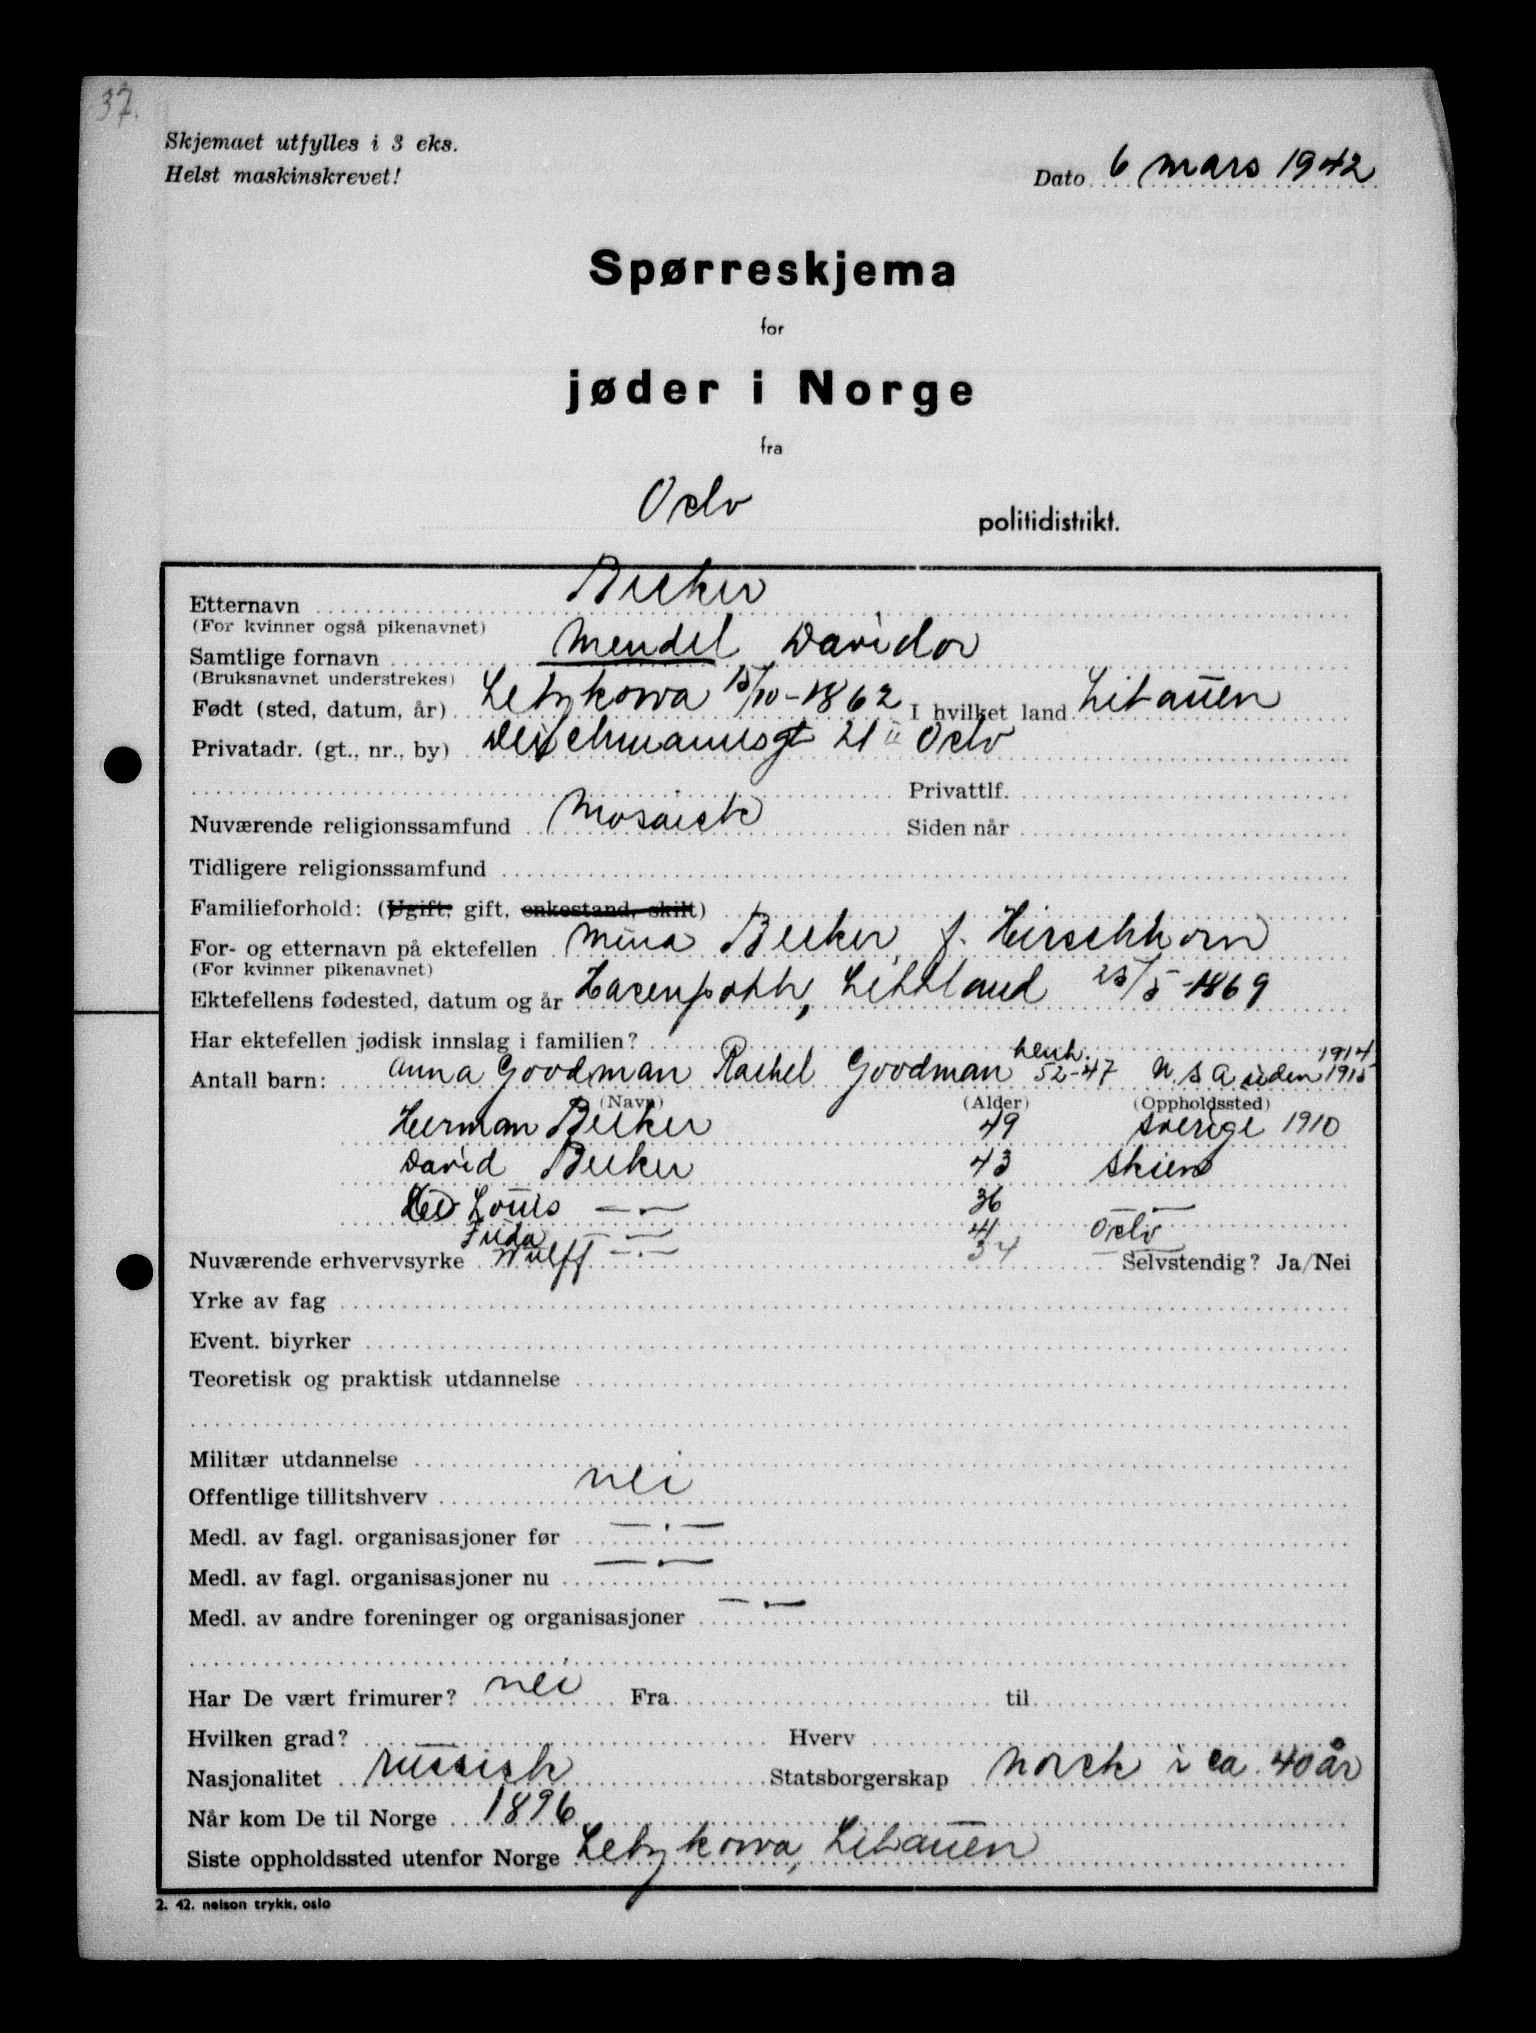 37.
Skjemaet utfylles i 3 eks.
Helst maskinskrevet!
Dato 6 mars 1942
Spørreskjema
for
jøder i Norge
fra
Oslo politidistrikt.
Etternavn Becker
(For kvinner også pikenavnet)
Samtlige fornavn Mendel Davidov
(Bruksnavnet understrekes)
Født (sted, datum, år) 15/10-1862 I hvilket land Litauen
Privatadr. (gt., nr., by) Deichmannsgt 21 II Oslo
Privattlf.
Nuværende religionssamfund Mosaisk Siden når
Tidligere religionssamfund
Familieforhold: (Ugift, gift, enkestand, skilt)
For- og etternavn på ektefellen Mina Becker f. Hirschhorn
(For kvinner pikenavnet)
Ektefellens fødested, datum og år Hasenpoth, Lettland 25/5-1869
Har ektefellen jødisk innslag i familien?
Antall barn: Anna Goodman Rachel Goodman henh. 52-47 U.S.A siden 1914 1915
(Navn) (Alder) (Oppholdssted)
Herman Becker 49 Sverige 1910
David Becker 43 Skien
Louis —.— 36 —
Frida —.— 41 Oslo
Nuværende erhvervsyrke Wulff —.— 34 — Selvstendig? Ja/Nei
Yrke av fag
Event. biyrker
Teoretisk og praktisk utdannelse
Militær utdannelse
Offentlige tillitshverv nei
Medl. av fagl. organisasjoner før —.—
Medl. av fagl. organisasjoner nu —.—
Medl. av andre foreninger og organisasjoner —.—
Har De vært frimurer? nei Fra til
Hvilken grad? Hverv
Nasjonalitet russisk Statsborgerskap Norsk i ca. 40 år
Når kom De til Norge 1896
Siste oppholdssted utenfor Norge Litauen
2. 42. nelson trykk, oslo